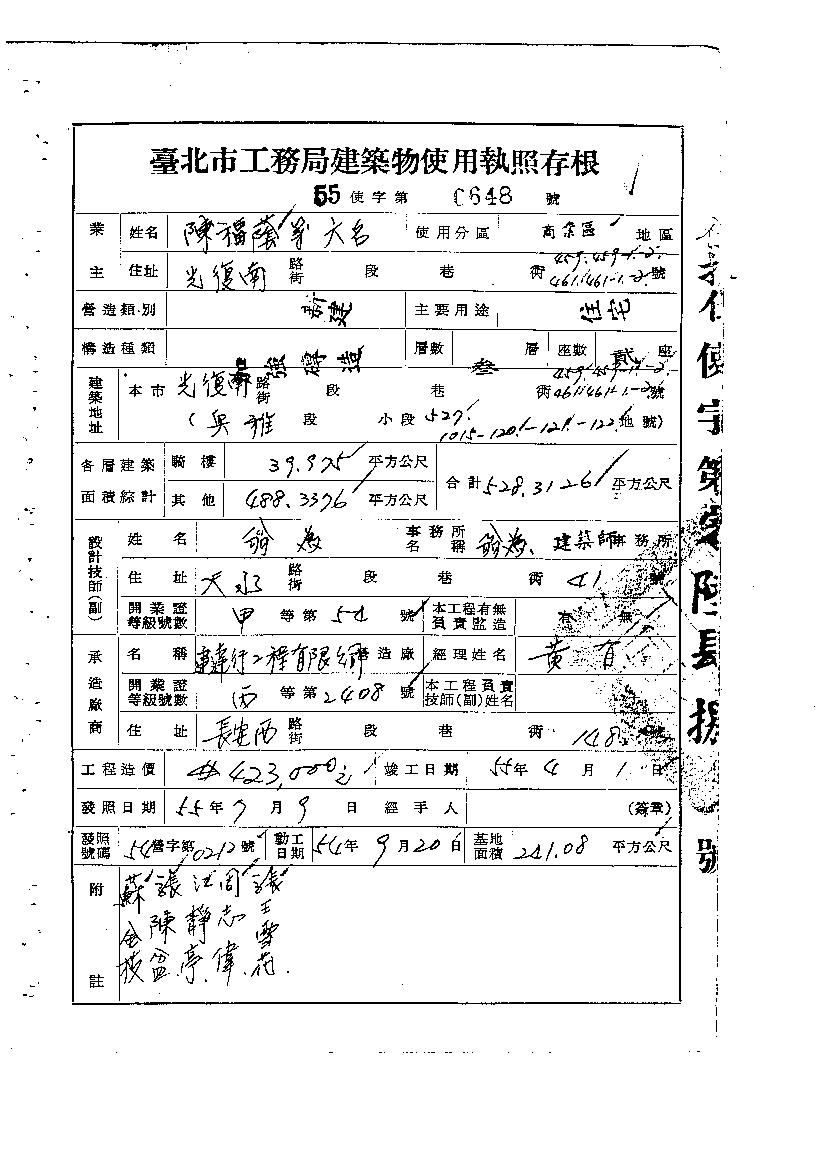 臺北市工務局建築物使用執照存根
55 使字第 0648 號
業主 姓名 陳福蔭等六名 使用分區 商業區 地區
住址 光復南 路街 段 巷 衖 459.459-1.-2. 461.461-1.-2. 號
營造類別 新建 主要用途 住宅
構造種類 加強磚造 層數 叁 層 座數 貳 座
建築地址 本市 光復南 路街 段 巷 衖 459.459-1.-2. 461.461-1.-2. 號
(吳雅 段 小段 527. 1015-120.-121.-122. 地號)
各層建築面積綜計 騎樓 39.975 平方公尺 合計 528.3126 平方公尺
其他 488.3376 平方公尺
設計技師(副) 姓名 事務所名稱 建築師事務所
住址 路街 段 巷 衖 41 號
開業證等級號數 甲 等第 54 號 本工程有無負責監造 有 無
承造廠商 名稱 行工程有限 營造廠 經理姓名 黃
開業證等級號數 丙 等第 2408 號 本工程負責技師(副)姓名
住址 長安西 路街 段 巷 衖 148
工程造價 423,000元 竣工日期 55年 4 月 1 日
發照日期 55年 7 月 9 日 經手人 (簽章)
發照號碼 54營字第 0212 號 動工日期 54年 9月20日 基地面積 241.08 平方公尺
附註 張王雪花. 周志偉. 江靜亭. 張陳盆 蘇金枝
使字第零陸肆捌號